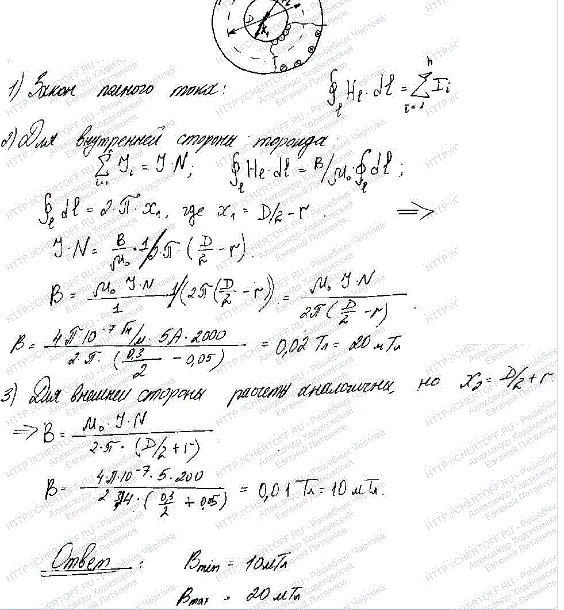 1) Закон полного тока: ∮_l H_l · dl = Σ_{i=1}^{n} I_i
2) Для внутренней стороны тороида
Σ_{i=1}^{n} I_i = I N; ∮_l H_l · dl = B/μ₀ · ∮_l dl ;
∮_l dl = 2 · π · x₁, где x₁ = D/2 - r. ⟹
I · N = B/μ₀ · 1/1 2π · (D/2 - r)
B = μ₀ · I · N / 1 · 1/(2π(D/2 - r)) = μ₀ I · N / 2π(D/2 - r).
B = 4π10⁻⁷ Гн/м · 5A · 2000 / 2 π · (0,3/2 - 0,05) = 0,02 Тл = 20 мТл
3) Для внешней стороны расчеты аналогичны, но x₂ = D/2 + r
⟹ B = μ₀ · I · N / 2 · π · (D/2 + r)
B = 4π10⁻⁷ · 5 · 200 / 2 · 3,14 · (0,3/2 + 0,05) = 0,01 Тл = 10 мТл.
Ответ : Bmin = 10мТл
Bmax = 20 мТл
HTTP://CHERTOFF.RU - Решебник Чертова
Александр Ходарев
Евгений Литвинов